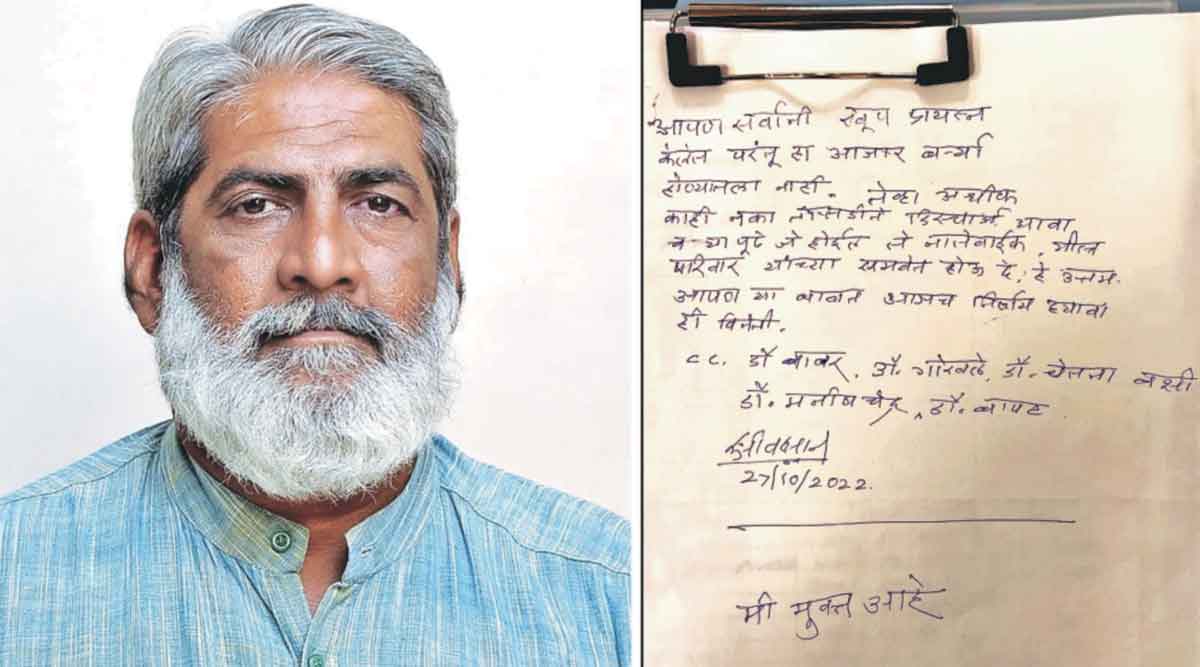 आपण सर्वानी खूप प्रयत्न
केलेत परंतू हा आजार बऱ्या
होण्यातला नाही. तेव्हा अधीक
काही नका डिस्चार्ज द्यावा
व या पूढे जे होईल ते नातेवाईक,
परिवार यांच्या समवेत होऊ दे, हे उत्तम.
आपण या बाबत आजच निर्णय घ्यावा
ही विनंती.
cc. डॉ बाबर, डॉ. गोखले, डॉ.
डॉ. मनीषचंद्र, डॉ. बापट
27/10/2022.
मी मुक्त आहे